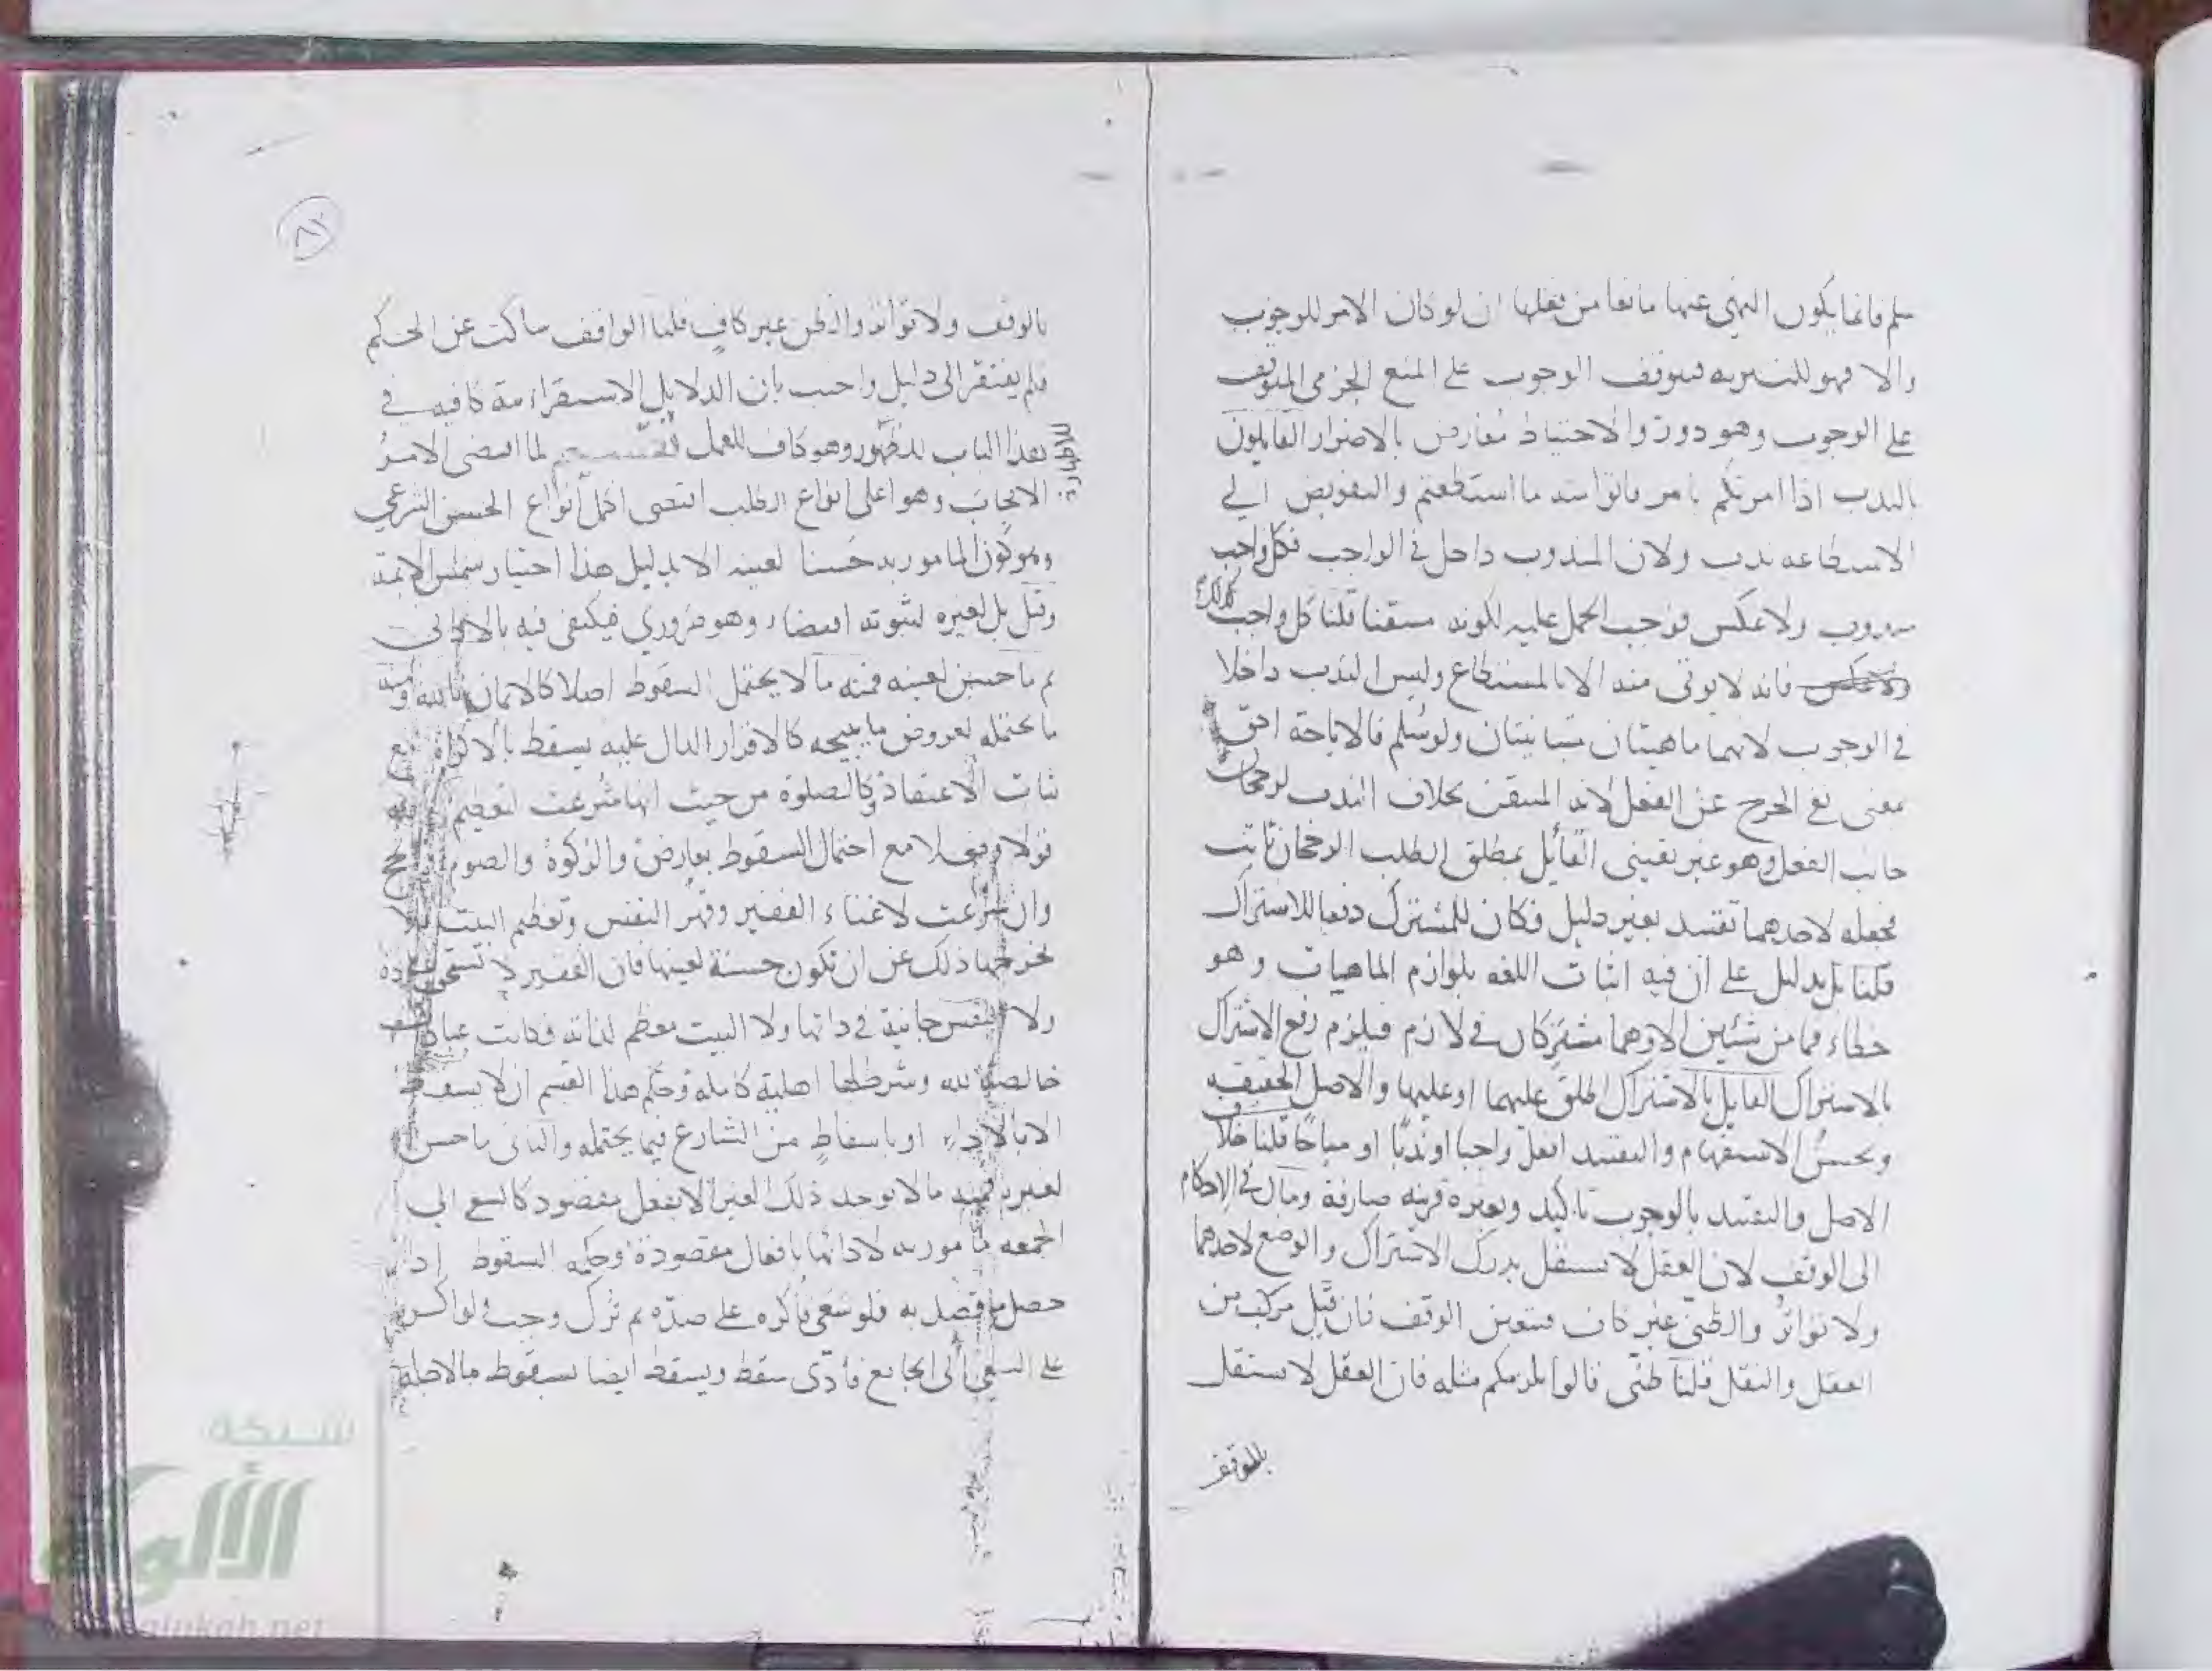 سلم فانما يكون النهي عنها مانعا من فعلها ان لو كان الامر للوجوب
والا فهو للتنزيه فيتوقف الوجوب على المنع الجزمي المتوقف
على الوجوب وهو دور والاحتياط معارض بالاضرار القايلون
بالندب اذا امرتكم بامر فاتوا منه ما استطعتم والتفويض الى
الاستطاعه ندب ولان المندوب داخل في الواجب فكل واجب
مندوب ولا عكس فوجب الحمل عليه لكونه متيقنا قلنا كل واجب كذلك
فانه لا يوتى منه الا بالمستطاع وليس الندب داخلا
في الوجوب لانهما ماهيتان متباينتان ولو سلم فالاباحة احق
معنى نفي الحرج عن الفعل لانه المتيقن بخلاف الندب لرجحان
جانب الفعل وهو غير يقيني القائل بمطلق الطلب الرجحان ثابت
فجعله لاحدهما تقييد بغير دليل فكان للمشترك دفعا للاشتراك
قلنا بل بدليل على ان فيه اثبات اللغه بلوازم الماهيات وهو
خطاء فما من شئين الا وهما مشتركان في لازم فيلزم رفع الاشتراك
بالاشتراك القايل بالاشتراك اطلق عليهما او عليها والاصل الحقيقه
ويحسن الاستفهام والتقييد افعل واجبا او ندبا او مباحا قلنا خلاف
الاصل والتقييد بالوجوب تاكيد وبغيره قرينه صارفة ومال في الاحكام
الى الوقف لان العقل لا يستقل بدرك الاشتراك والوضع لاحدهما
ولا تواتر والظني غير كاف فتعين الوقف فان قيل مركب من
العقل والنقل قلنا ظني قالوا يلزمكم مثله فان العقل لا يستقل
بالوقف
بالوقف ولا تواتر والظن غير كاف قلنا الواقف ساكت عن الحكم
فلم يفتقر الى دليل واجيب بان الدلايل الاستقرائية كافيه في
هذا الباب للظهور وهو كاف للعمل تقسيم لما اقتضى الامر
الايجاب وهو اعلى انواع الطلب اقتضى اكمل انواع الحسن الشرعي
وهو كون المامور به حسنا لعينه الا بدليل هذا اختيار شمس الائمة
وقيل بل لغيره لثبوته اقتضاء وهو ضروري فيكتفى فيه بالادنى
ثم ما حسن لعينه فمنه ما لا يحتمل السقوط اصلا كالايمان بالله ومنه
ما يحتمله لعروض ما يبيحه كالاقرار الدال عليه يسقط بالاكراه مع
ثبات الاعتقاد وكالصلوة من حيث انها شرعت لتعظيم
قولا وفعلا مع احتمال السقوط بعارض والزكوة والصوم والحج
وان شرعت لاغناء الفقير وقهر النفس وتعظيم البيت فلا
يخرجها ذلك عن ان تكون حسنة لعينها فان الفقير لا يستحق عبادة
ولا النفس جانية في ذاتها ولا البيت معظم لذاته فكانت عبادة
خالصة لله وشرطها اهلية كاملة وحكم هذا القسم ان لا يسقط
الا بالاداء او باسقاط من الشارع فيما يحتمله والثاني ما حسن
لغيره فمنه ما لا يوجد ذلك الغير الا بفعل مقصود كالسعي الى
الجمعه مامور به لادائها بافعال مقصودة وحكمه السقوط اذا
حصل ما قصد به فلو سعى فاكره على ضده ثم ترك وجب ولو اكره
على السعي الى الجامع فادى سقط ويسقط ايضا بسقوط ما لاجله
شبكة
الألوكة
alukah.net